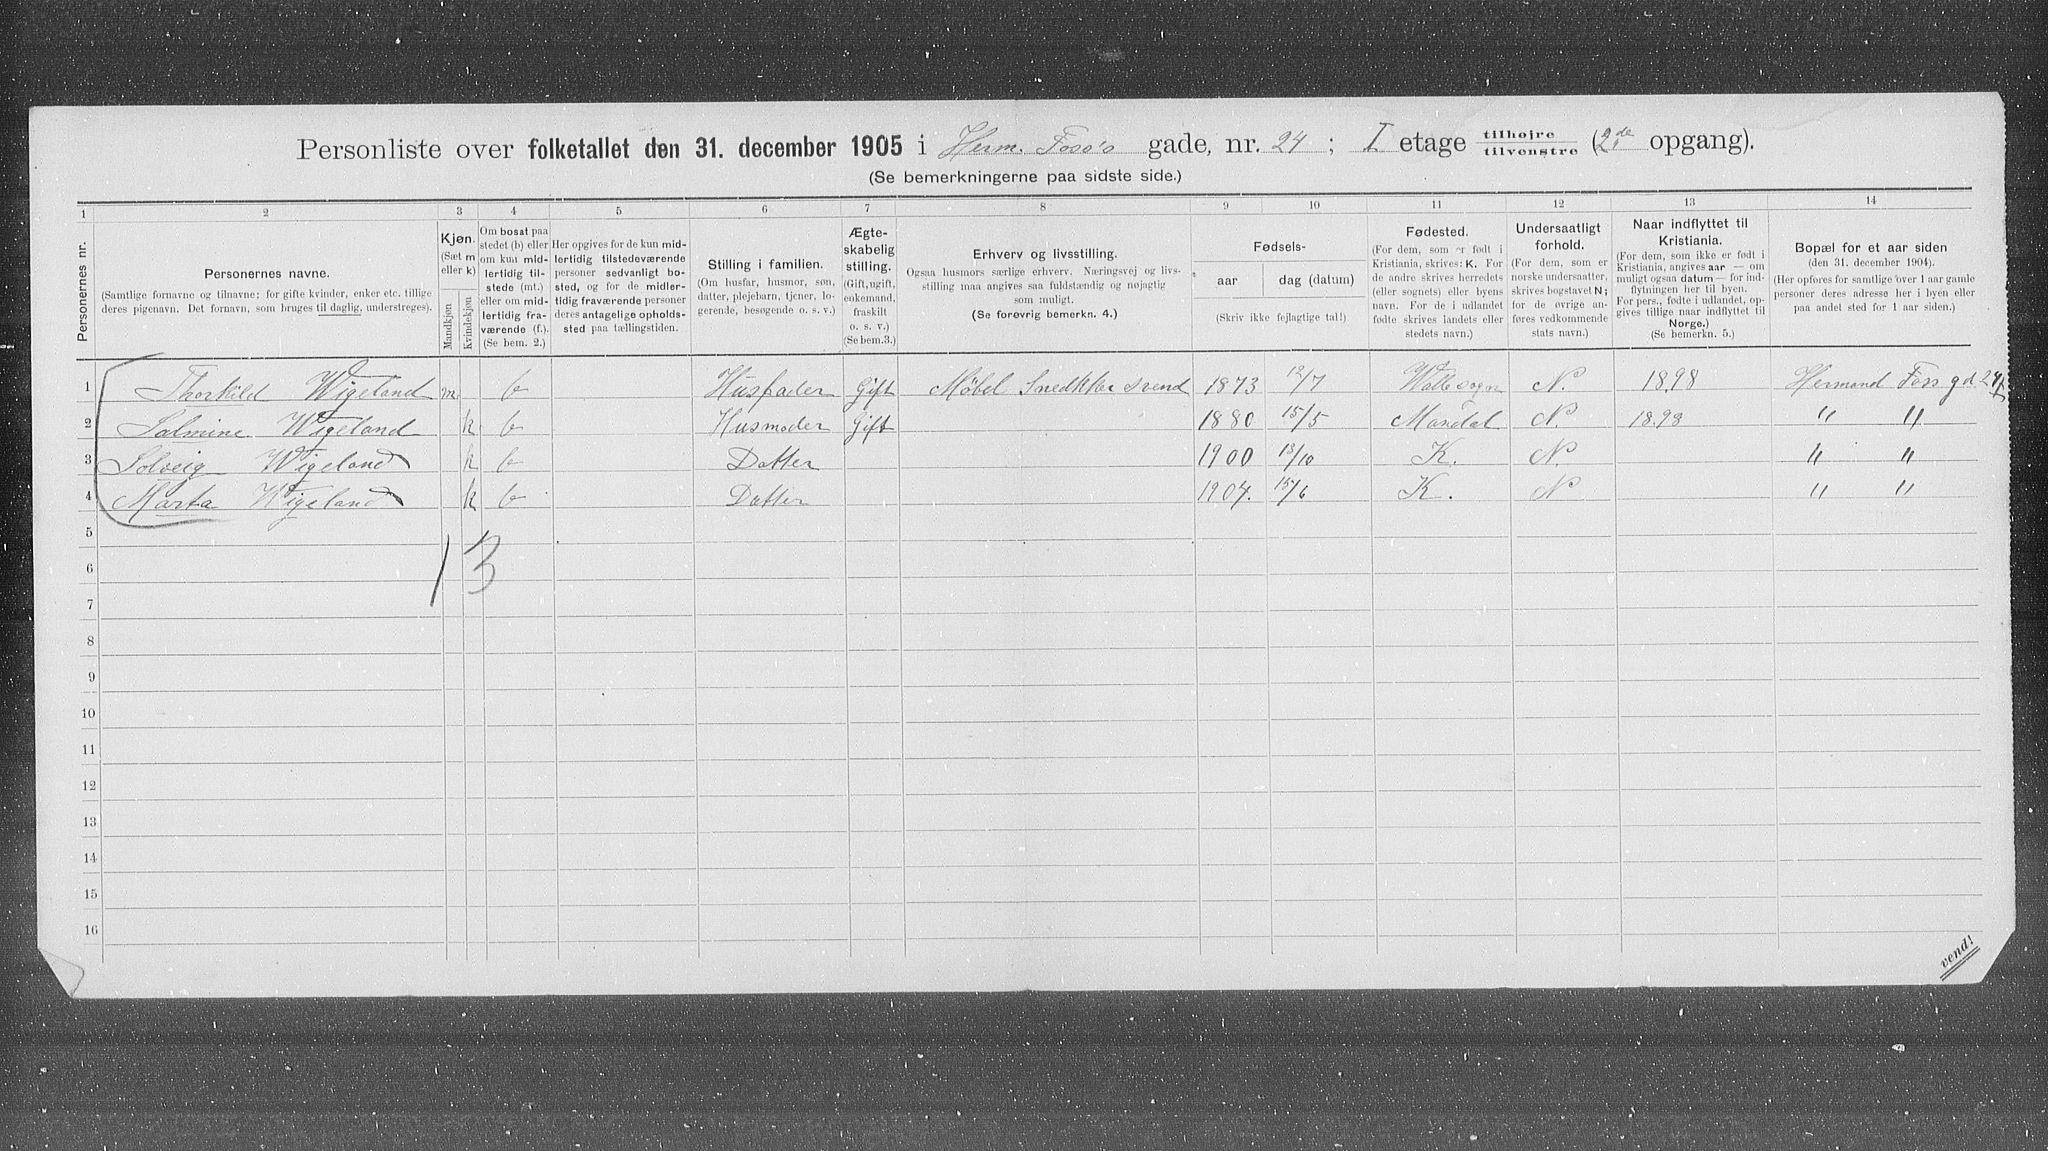 Personliste over folketallet den 31. december 1905 i Herm. Foss's gade, nr. 24; I etage tilhøjre tilvenstre (2de opgang).
(Se bemerkningerne paa sidste side.)
1 2 3 4 5 6 7 8 9 10 11 12 13 14
Personernes nr.
Personernes navne.
(Samtlige fornavne og tilnavne; for gifte kvinder, enker etc. tillige deres pigenavn. Det fornavn, som bruges til daglig, understreges).
Kjøn.
(Sæt m eller k)
Mandkjøn
Kvindekjøn
Om bosat paa stedet (b) eller om kun midlertidig tilstede (mt.) eller om midlertidig fraværende (f.). (Se bem. 2.)
Her opgives for de kun midlertidig tilstedeværende personer sedvanligt bosted, og for de midlertidig fraværende personer deres antagelige opholdssted paa tællingstiden.
Stilling i familien.
(Om husfar, husmor, søn, datter, plejebarn, tjener, logerende, besøgende o. s. v.)
Ægteskabelig stilling.
(Gift, ugift, enkemand, fraskilt o. s. v.)
(Se bem. 3.)
Erhverv og livsstilling.
Ogsaa husmors særlige erhverv. Næringsvej og livsstilling maa angives saa fuldstændig og nøjagtig som muligt.
(Se forøvrig bemerkn. 4.)
Fødsels-
aar
dag (datum)
(Skriv ikke fejlagtige tal!)
Fødested.
(For dem, som er født i Kristiania, skrives: K. For de andre skrives herredets (eller sognets) eller byens navn. For de i udlandet fødte skrives landets eller stedets navn.)
Undersaatligt forhold.
(For dem, som er norske undersaatter, skrives bogstavet N; for de øvrige anføres vedkommende stats navn.)
Naar indflyttet til Kristiania.
(For dem, som ikke er født i Kristiania, angives aar — om muligt ogsaa datum — for indflytningen her til byen. For pers., fødte i udlandet, opgives tillige naar indflyttet til Norge.)
(Se bemerkn. 5.)
Bopæl for et aar siden
(den 31. december 1904).
(Her opføres for samtlige over 1 aar gamle personer deres adresse her i byen eller paa andet sted for 1 aar siden.)
1 Thorkild Wigeland m b Husfader Gift Møbel Snedkker Svend 1873 12/7 Halle sogn N. 1898 Hermand Foss gd 24
2 Salmine Wigeland k b Husmoder Gift 1880 15/5 Mandal N. 1898 " "
3 Solveig Wigeland k b Datter 1900 13/10 K. N. " "
4 Marta Wigeland k b Datter 1904. 15/6 K. N " "
5
1 3
6
7
8
9
10
11
12
13
14
15
16
vend!